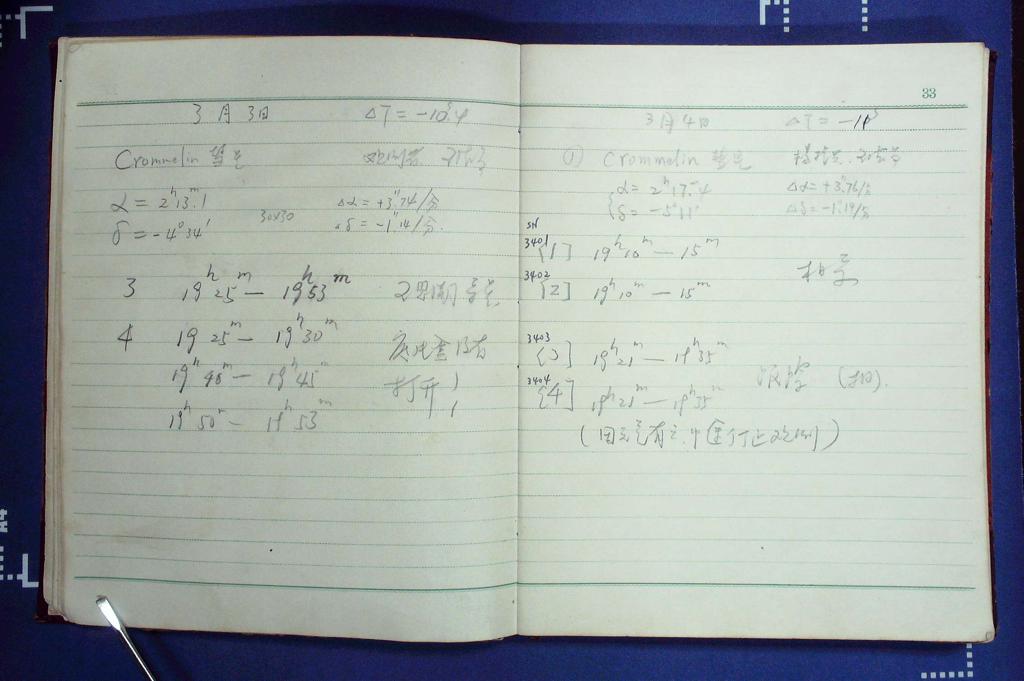 3月3日 ΔT = -10ˢ.4
Crommelin 彗星 观测者
α = 2ʰ13ᵐ.1 Δα = +3".74/分
δ = -4°34' 30x30 Δδ = -1".14/分.
3 19ʰ25ᵐ — 19ʰ53ᵐ
4 19 25ᵐ — 19ʰ30ᵐ 底片盒没有
19ʰ40ᵐ — 19ʰ45ᵐ 打开!
19ʰ50ᵐ — 19ʰ53ᵐ !
33
3月4日 ΔT = -11ˢ
① Crommelin 彗星
α = 2ʰ17ᵐ.4 Δα = +3".76/分
δ = -5°11' Δδ = -1".19/分
SN
3401 [1] 19ʰ10ᵐ — 15ᵐ
3402 [2] 19ʰ10ᵐ — 15ᵐ
3403 [3] 19ʰ21ᵐ — 19ʰ35ᵐ
3404 [4] 19ʰ21ᵐ — 19ʰ35ᵐ
(因天气有云.中途停止观测)